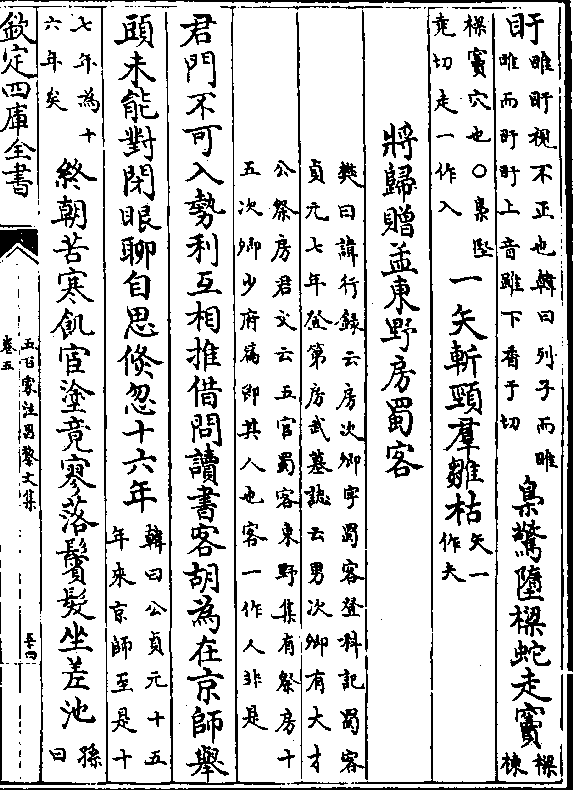 盱
睢盱視不正也韓曰列子而睢
睢而盱盱上音雖下香于切
梟驚墮樑蛇走竇
樑
棟
樑竇穴也〇梟堅
堯切走一作入
一矢斬頸羣雛枯
矢一
作夫
將歸贈孟東野房蜀客
樊曰諱行録云房次卿字蜀客登科記蜀客
貞元七年登第房武墓誌云男次卿有大才
公祭房君文云五官蜀客東野集有祭房十
五次卿少府篇即其人也客一作人非是
君門不可入勢利互相推借問讀書客胡為在京師舉
頭未能對閉眼聊自思倐忽十六年
韓曰公貞元十五
年來京師至是十
七年為十
六年矣
終朝苦寒飢宦塗竟寥落鬢髮坐差池
孫
曰
欽定四庫全書
五百家注昌黎文集
卷五